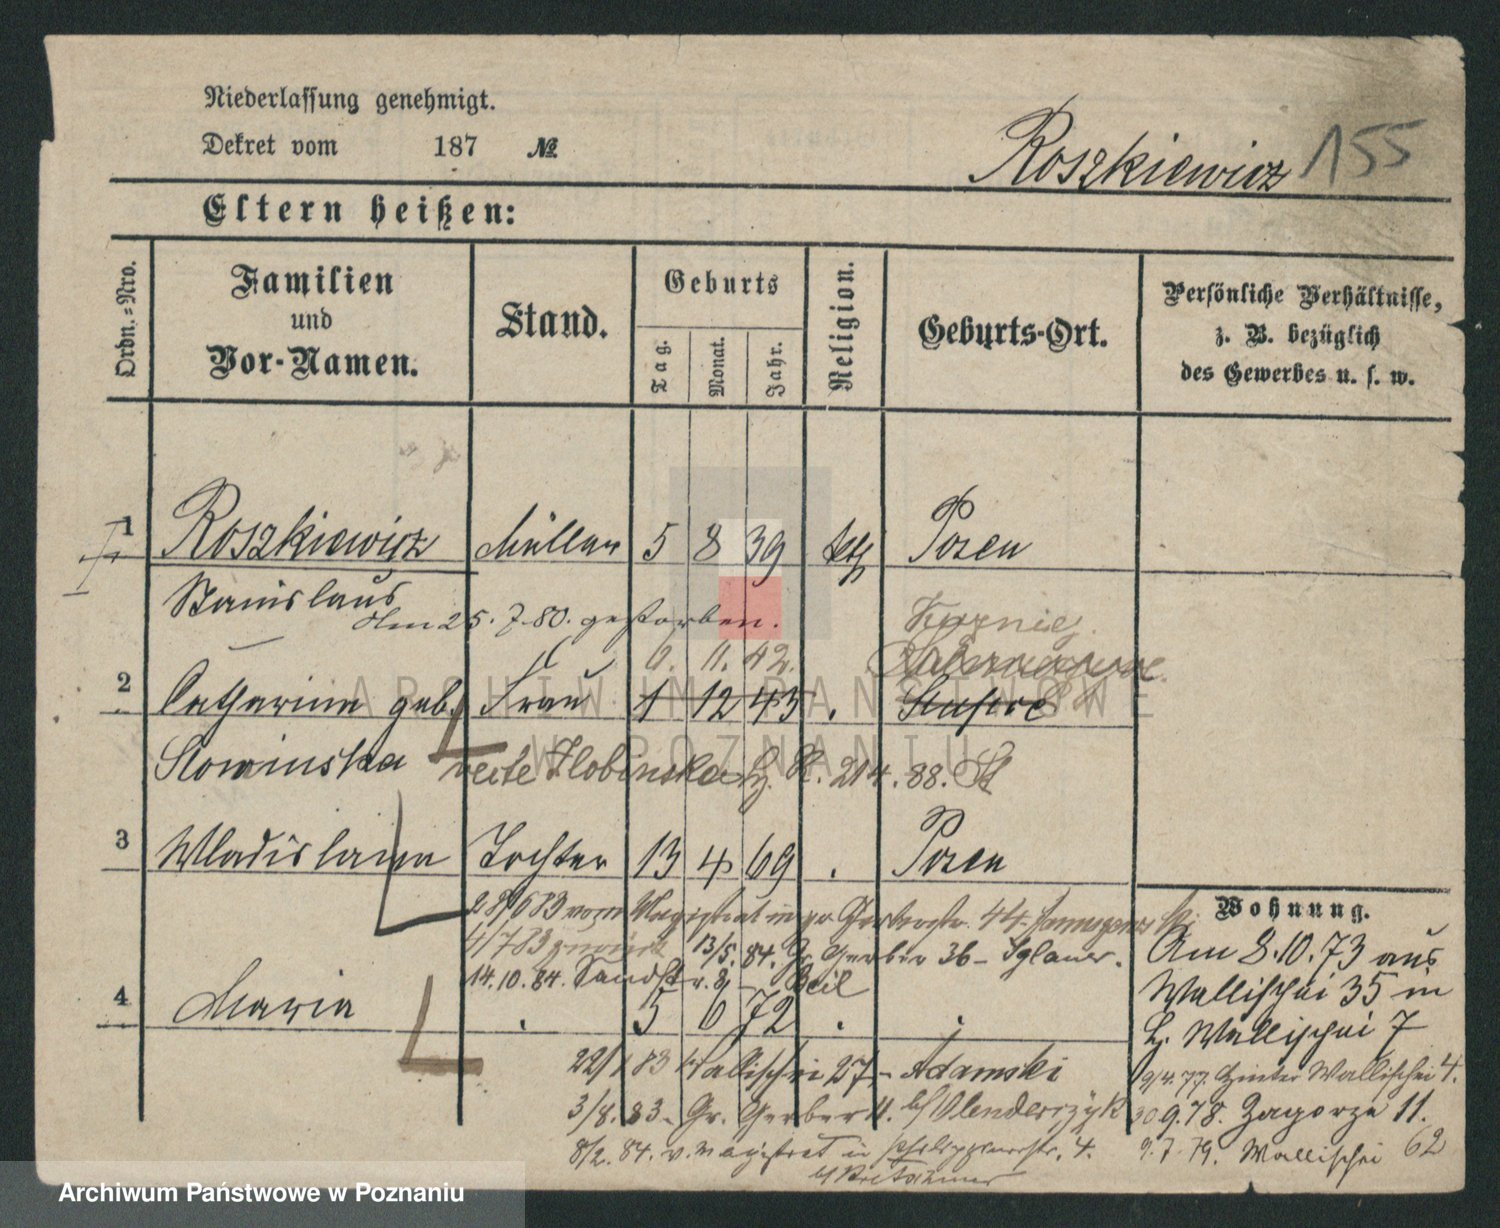 Niederlassung genehmigt.
Dekret vom 187 №
Roszkiewicz 155
Eltern heißen:
Ordn.=Nro.
Familien und Vor-Namen.
Stand.
Geburts
Tag.
Monat.
Jahr.
Religion.
Geburts-Ort.
Persönliche Verhältnisse,
z. B. bezüglich
des Gewerbes u. s. w.
1 Roszkiewicz Müller 5 8 39 kth Posen
Stanislaus
Am 25. 7. 80. gestorben.
6. 11. 42.
2 Catharina geb. Frau 1 12 43
Slowinska
3 Wladislawa Tochter 13 4 69 Posen
28/6 83 vom Magistrat in gr Gerberstr. 44
4/7 83 13/5. 84. Gr. Gerber 36 - Iglauer.
14.10.84. Sandstr. 8 - Beil
4 Maria 5 6 72
22/1 83 Wallischei 27, - Adamski
3/8. 83 - Gr. Gerber
8/2. 84. v. Magistrat in 4.
Wohnung.
Am 8.10.73 aus
Wallischei 35 in
H. Wallischei 7
9/4. 77. Hinter Wallischei 4.
30 9.78. Zagorze 11.
9.7.79. Wallischei 62
ARCHIWUM PAŃSTWOWE
W POZNANIU
Archiwum Państwowe w Poznaniu